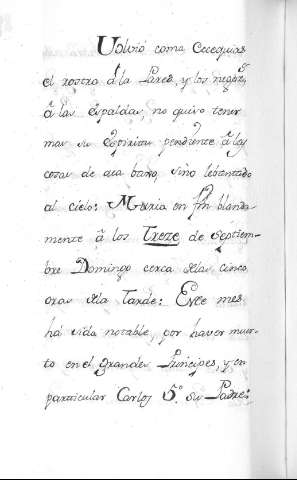 Volvió como Ececquias
el rostro á la Pared, y los negos.ˢ
á las espaldas, no quiso tener
mas su Espiritu pendiente á las
cosas de aca baxo, sino lebantado
al cielo: Moria en fin blanda-
mente á los Treze de Septiem-
bre Domingo cerca dlas cinco
oras dla Tarde: Este mes
há sido notable, por haver muer-
to en el grandes Principes, y en
particular Carlos 5.º su Padre: